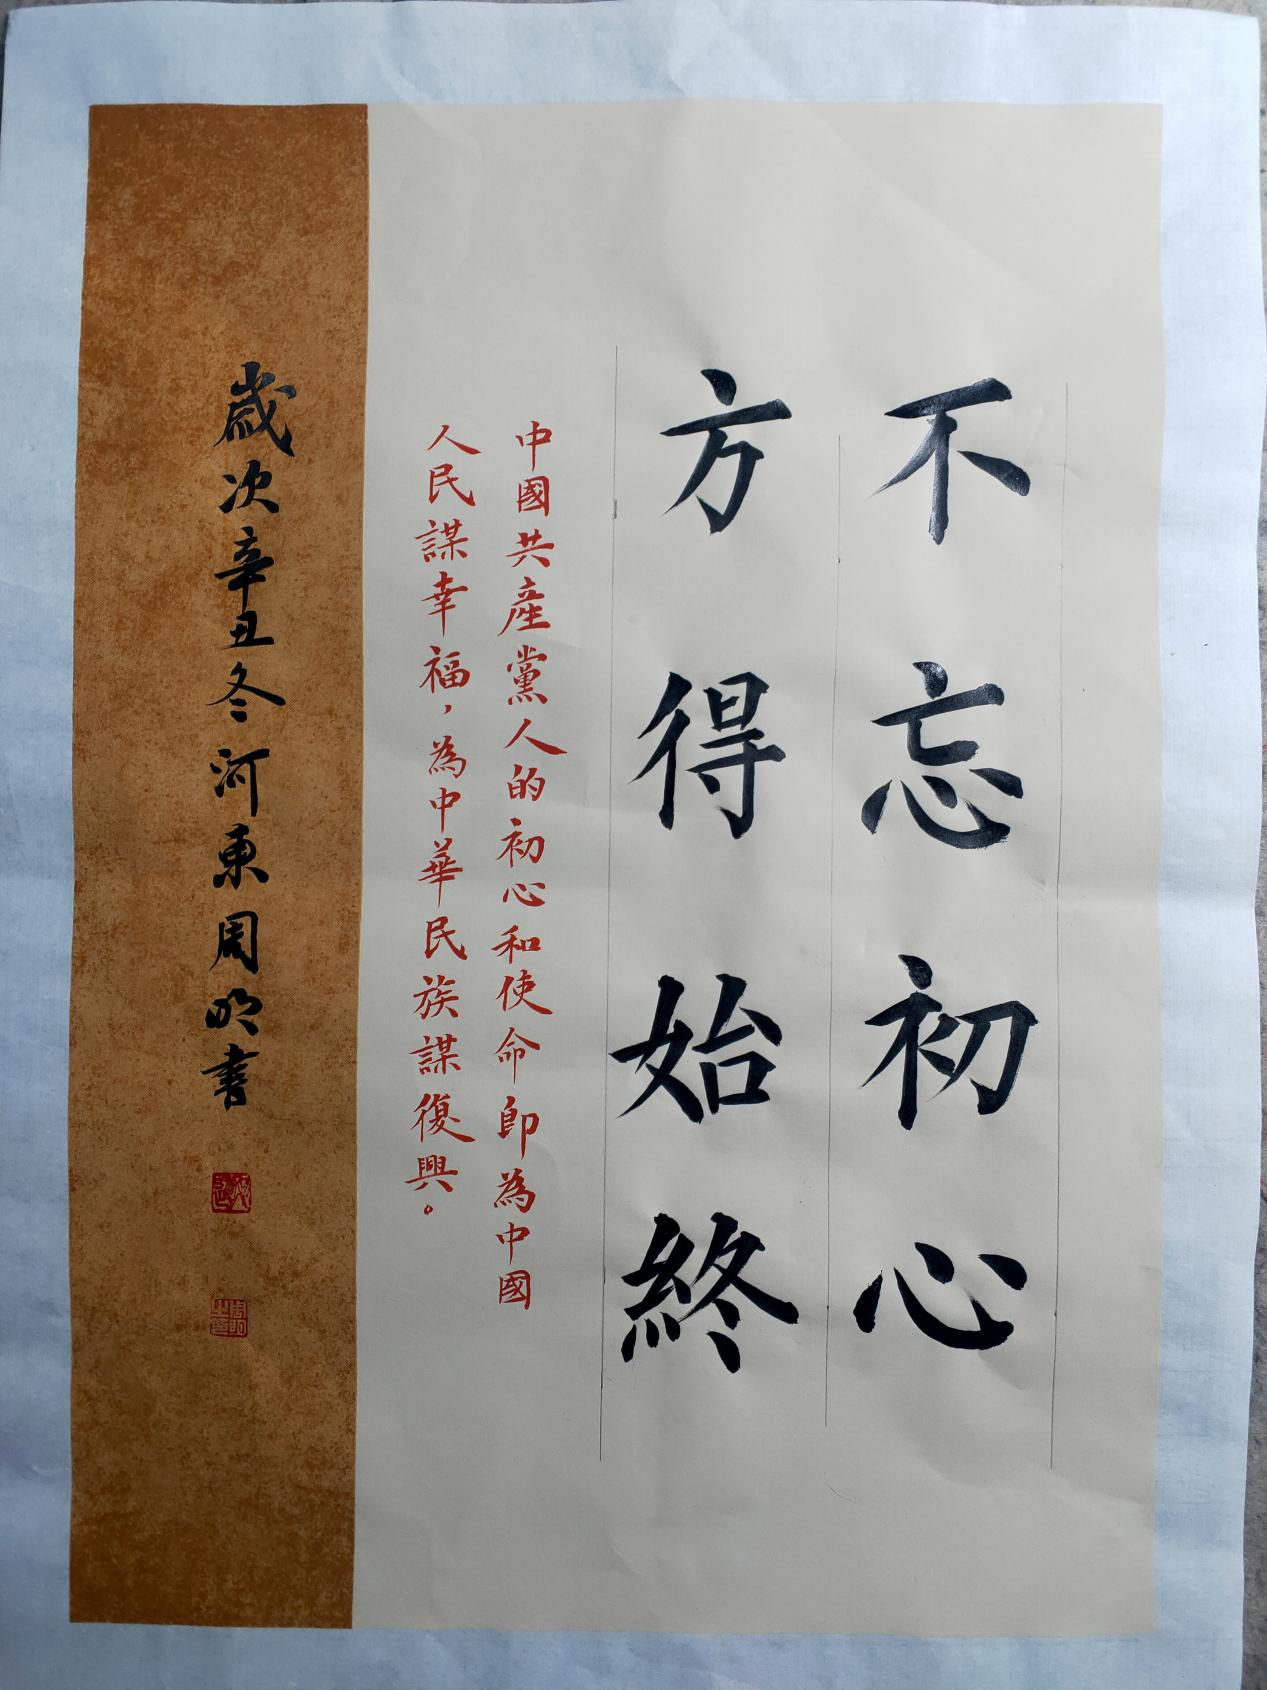 不忘初心
方得始終
中國共產黨人的初心和使命即為中國
人民謀幸福，為中華民族謀復興。
歲次辛丑冬河東周明書